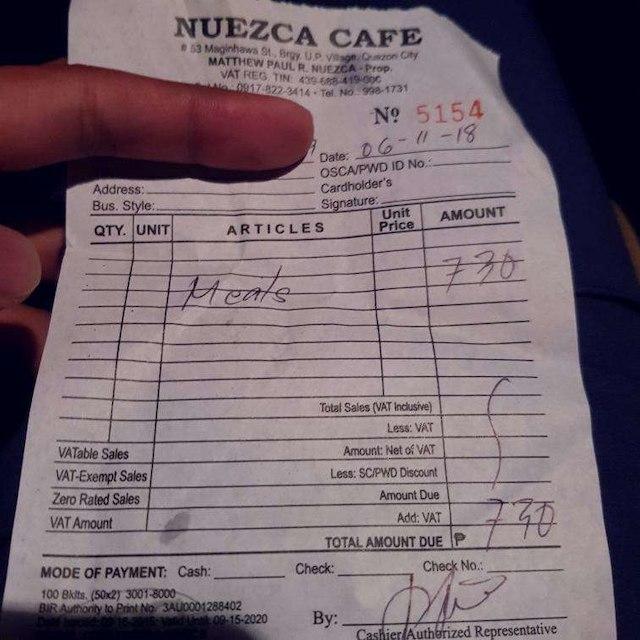 NUEZCA CAFE
# 53 Maginhawa St., Brgy. U.P. Village, Quezon City
MATTHEW PAUL R. NUEZCA - Prop.
VAT REG. TIN: 439-688-419-000
No.: 0917-822-3414 • Tel. No.: 998-1731
Nº 5154
Date: 06-11-18
OSCA/PWD ID No.:
Address: Cardholder's
Bus. Style: Signature:
QTY. UNIT ARTICLES Unit Price AMOUNT
730
Meals
Total Sales (VAT Inclusive)
Less: VAT
VATable Sales Amount: Net of VAT
VAT-Exempt Sales Less: SC/PWD Discount
Zero Rated Sales Amount Due
VAT Amount Add: VAT
TOTAL AMOUNT DUE ₱ 730
MODE OF PAYMENT: Cash: Check: Check No.:
100 Bklts. (50x2) 3001-8000
BIR Authority to Print No. 3AU0001288402
Date Issued: 09-16-2015; Valid Until 09-15-2020
By:
Cashier/Authorized Representative